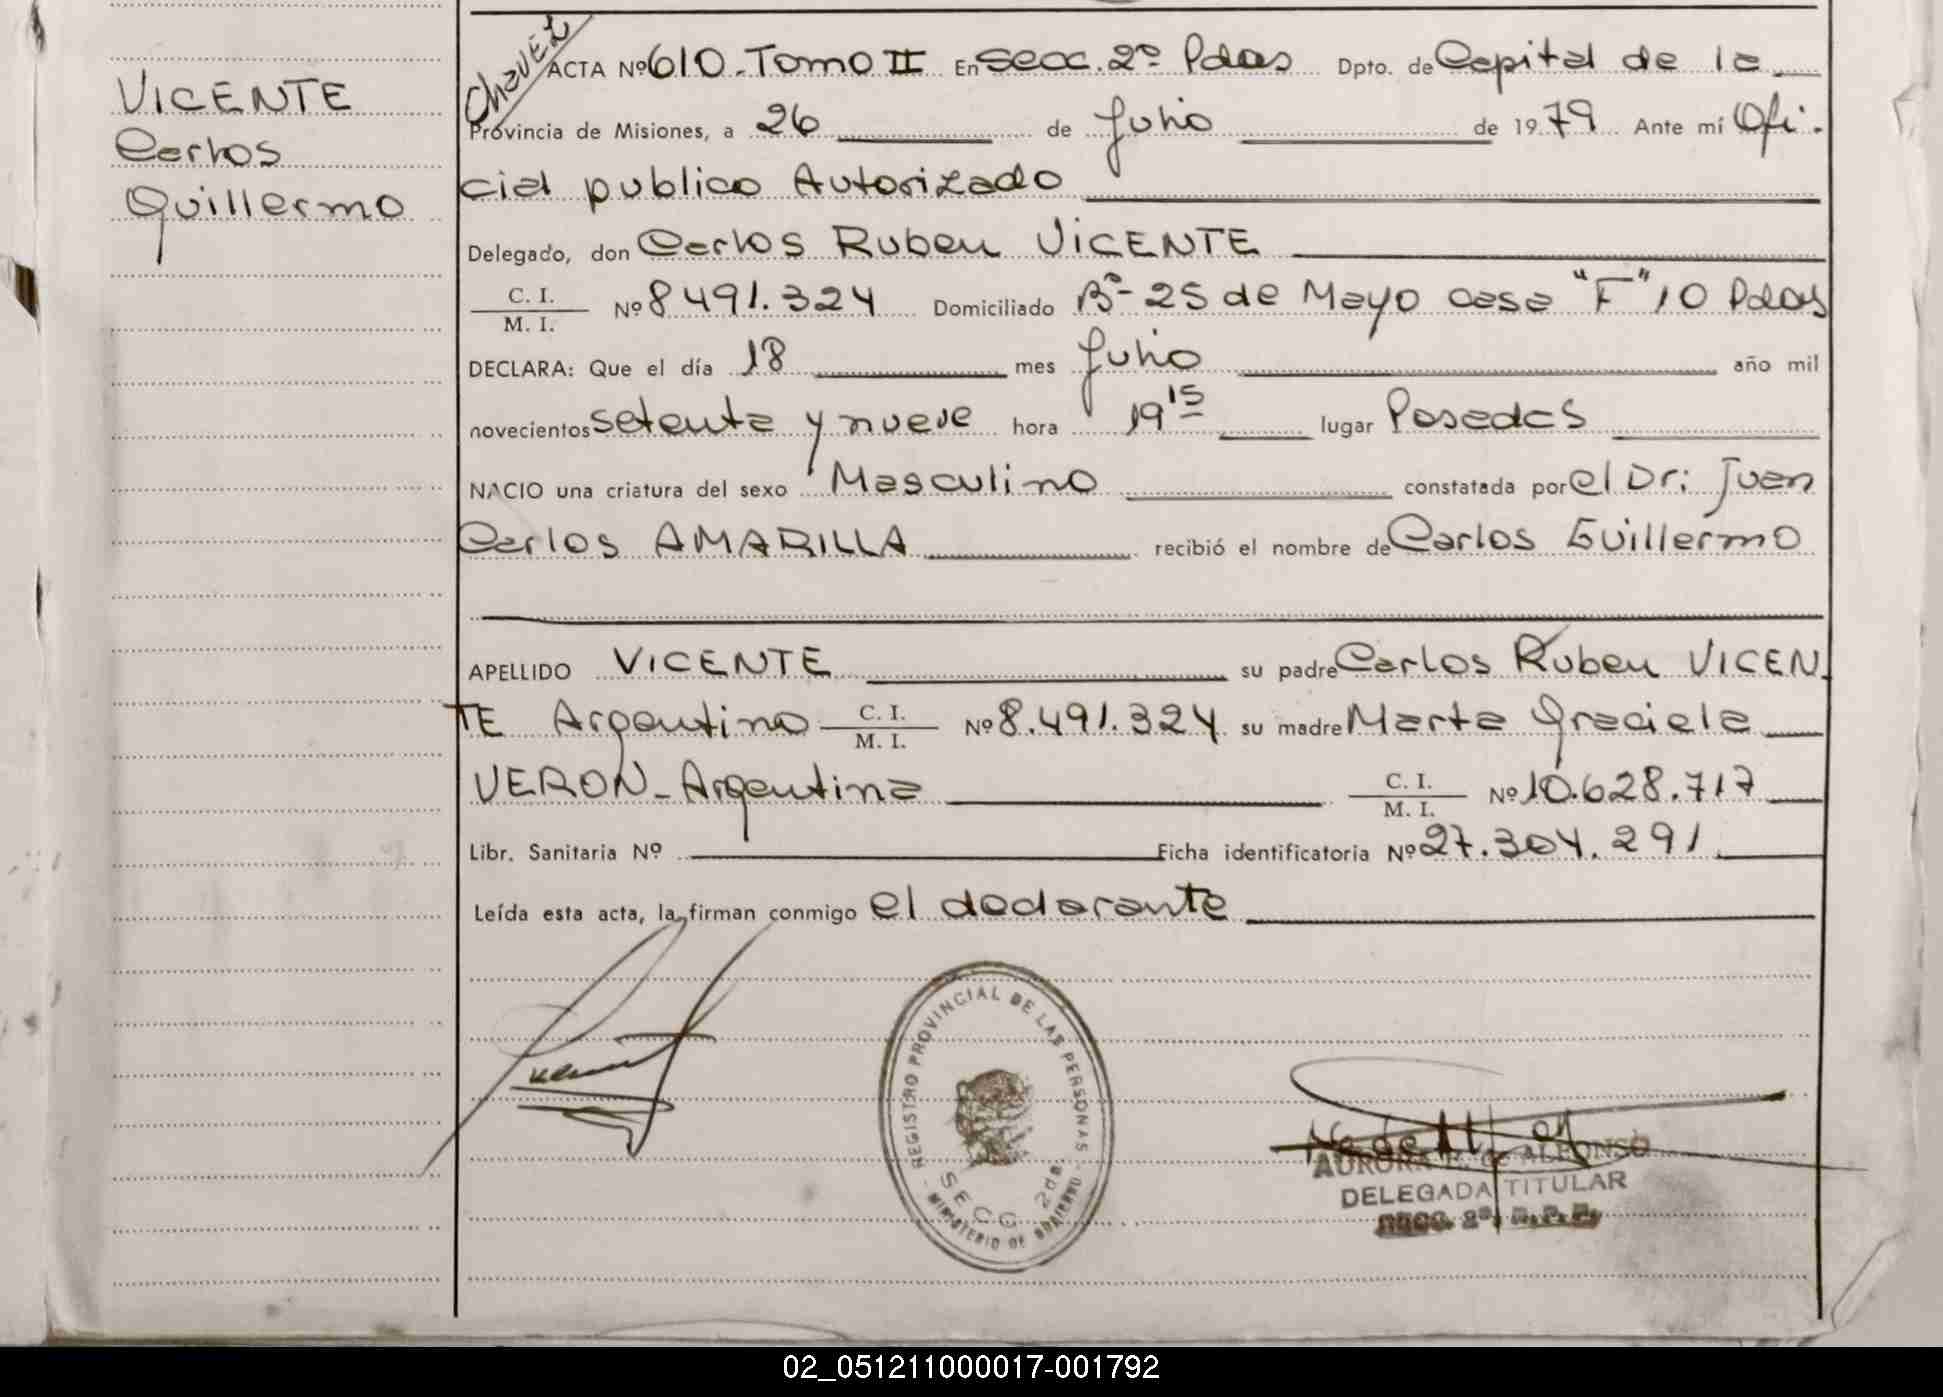 VICENTE
Carlos
Guillermo
Chavez
ACTA Nº 610. Tomo II En Secc. 2º Pdas Dpto. de Capital de la
Provincia de Misiones, a 26 de Julio de 1979 Ante mí Ofi-
cial publico Autorizado
Delegado, don Carlos Ruben VICENTE
C. I.
M. I. Nº 8491.324 Domiciliado Bº- 25 de Mayo casa "F" 10 Pdas
DECLARA: Que el día 18 mes Julio año mil
novecientos setenta y nueve hora 19 15 lugar Posadas
NACIO una criatura del sexo Masculino constatada por el Dr: Juan
Carlos AMARILLA recibió el nombre de Carlos Guillermo
APELLIDO VICENTE su padre Carlos Ruben VICEN-
TE Argentino C. I. M. I. Nº 8.491.324 su madre Marta Graciela
VERON-Argentina C. I. M. I. Nº 10.628.717
Libr. Sanitaria Nº Ficha identificatoria Nº 27.304.291
Leída esta acta, la firman conmigo el declarante
REGISTRO PROVINCIAL DE LAS PERSONAS
SECC 2da.
MINISTERIO DE GOBIERNO
AURORA de ALFONSO
DELEGADA TITULAR
SECC. 2ª
02_051211000017-001792